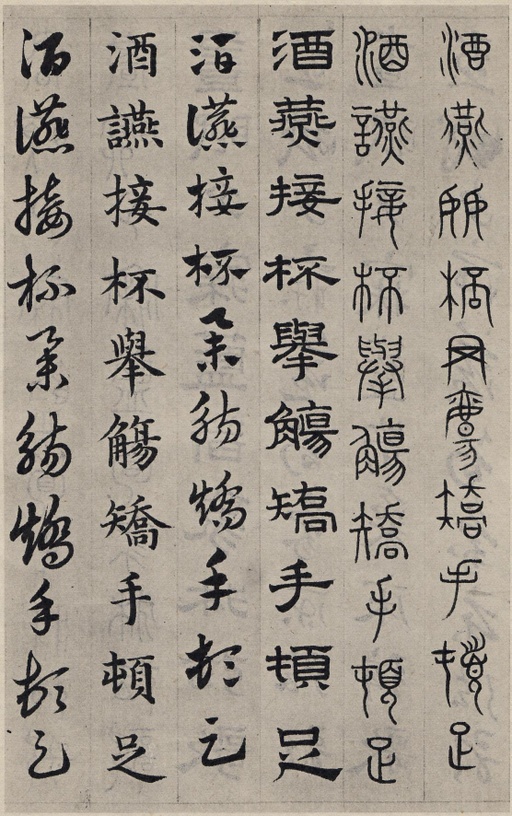 酒讌接杯舉觴矯手頓足
酒讌接杯舉觴矯手頓足
酒燕接杯舉觴矯手頓足
酒讌接杯舉觴矯手頓足
酒讌接杯舉觴矯手頓足
酒讌接杯舉觴矯手頓足